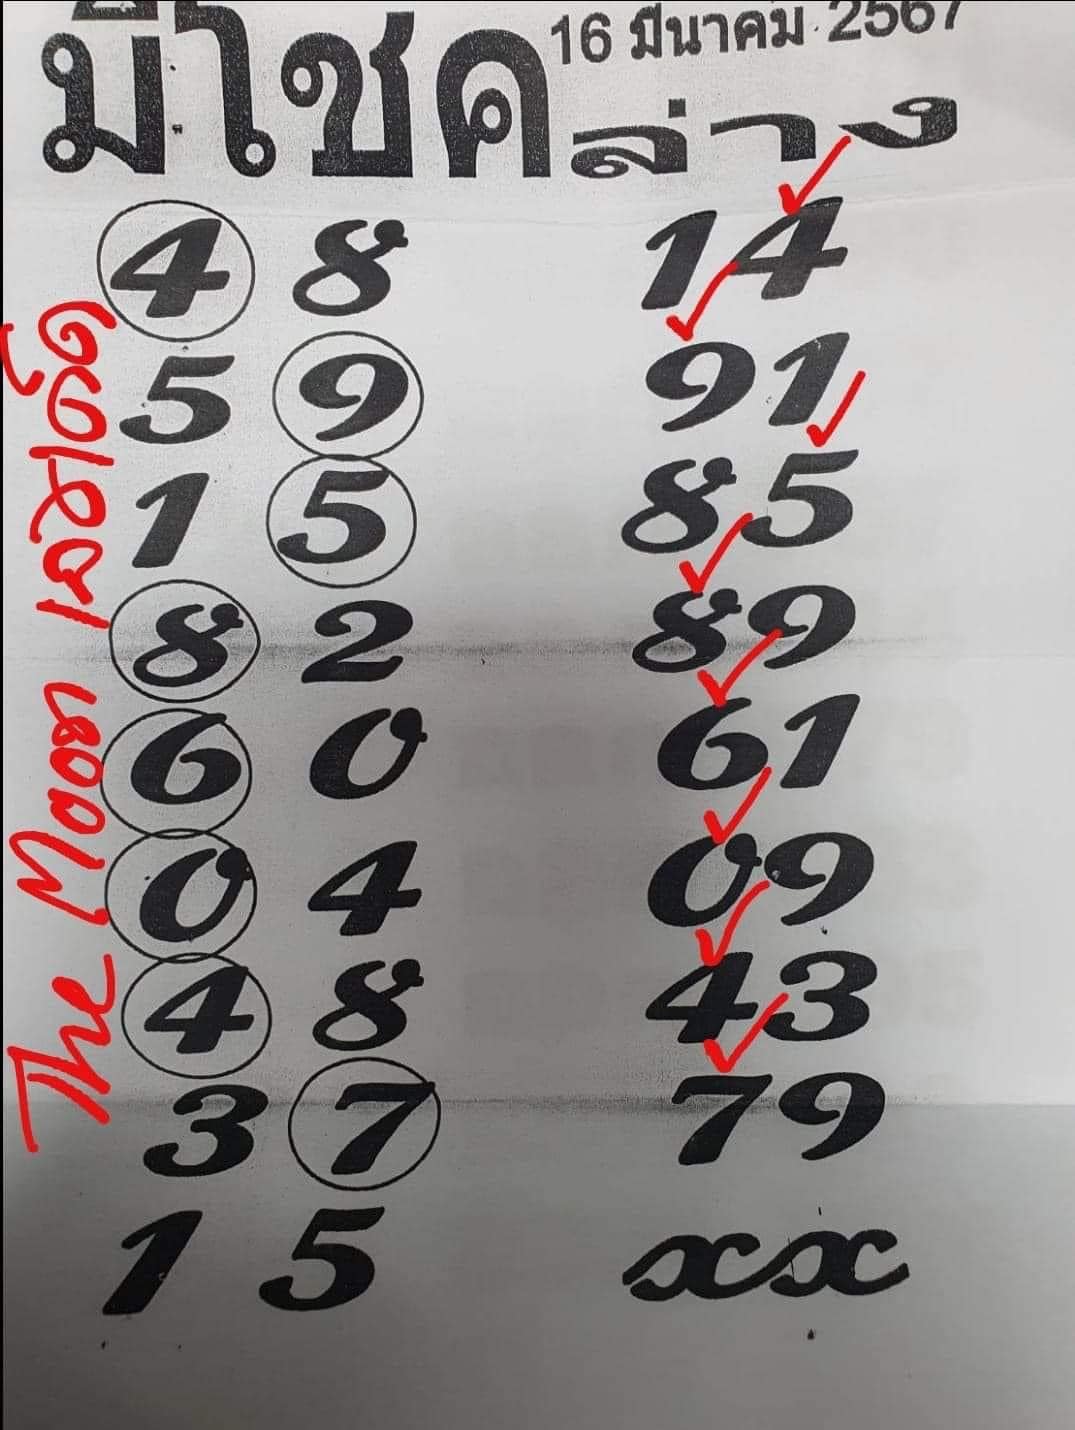 มีโชค 16 มีนาคม 2567
ล่าง
4 8 14
5 9 91
1 5 85
8 2 89
6 0 61
0 4 09
4 8 43
3 7 79
1 5 xx
The Moon เลขเด็ด